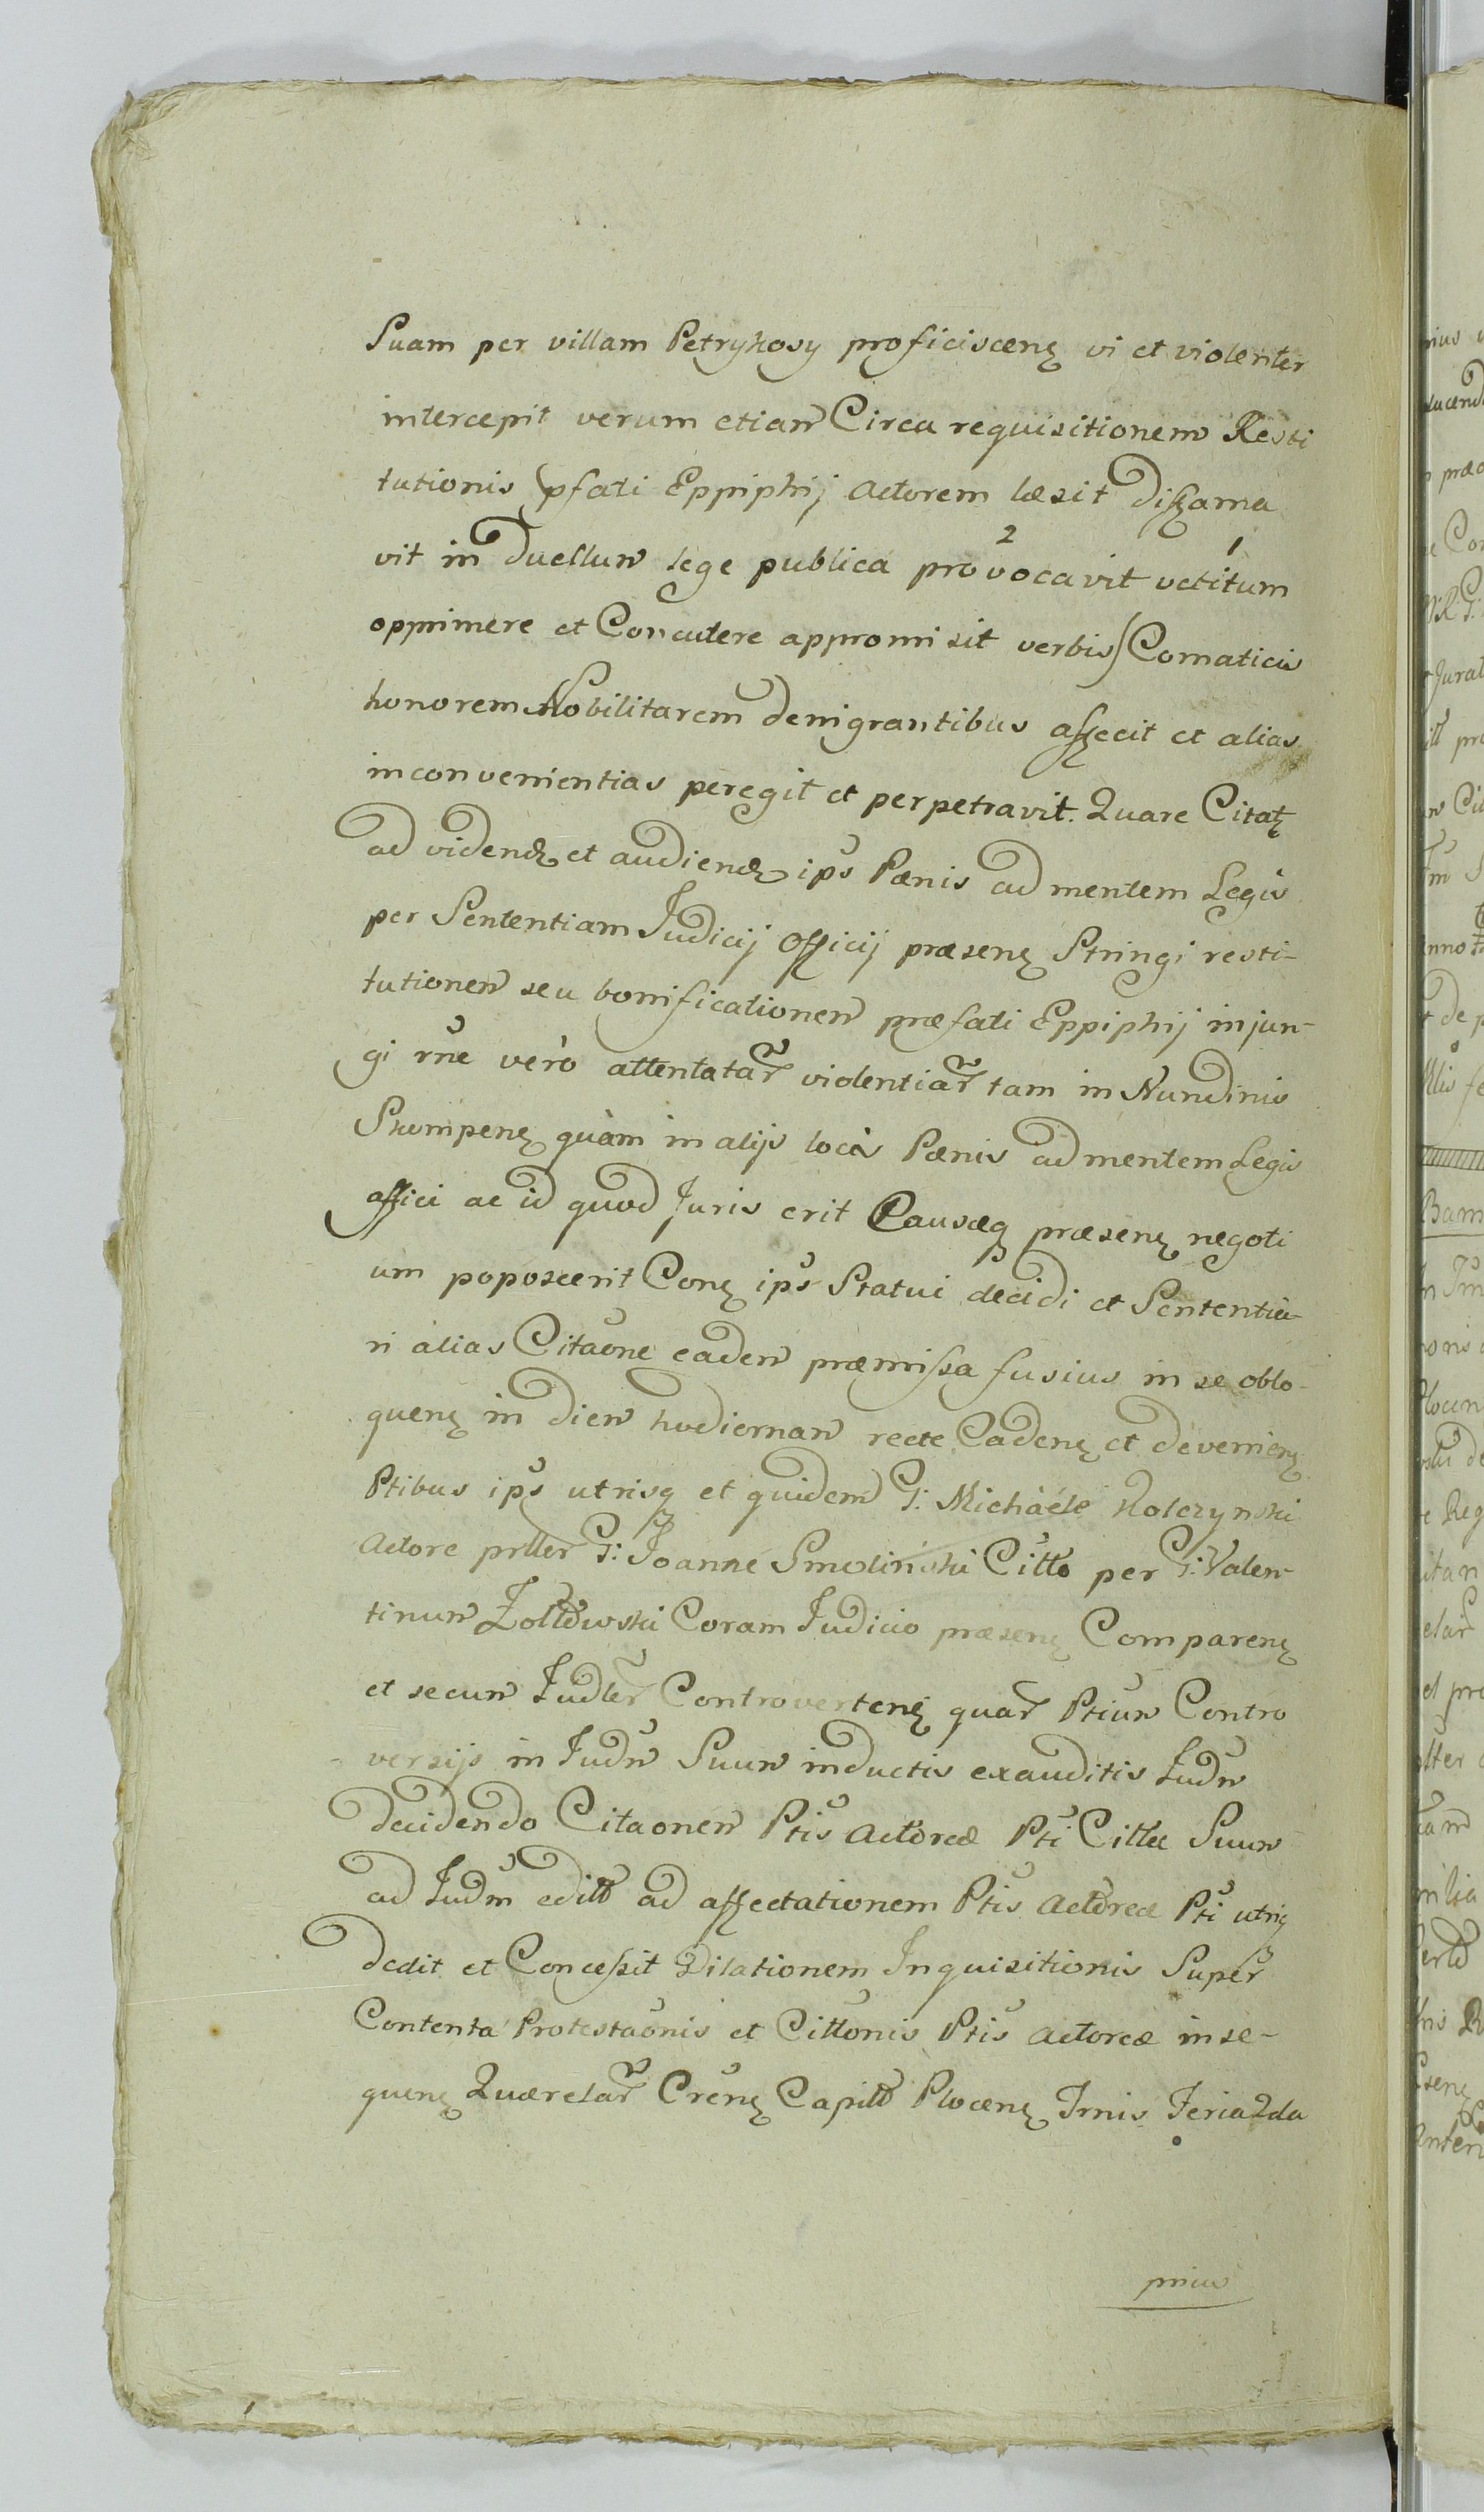 Suam per villam Petrykosy proficiscenę vi et violenter
intercepit verum etiam Circa requisitionem Resti
tutionis pfati Eppiphij Actorem læsit diffama
vit in duellum lege publica provocavit vetitum
2 1
opprimere et Concutere appromisit verbis Comaticis
honorem Nobilitarem denigrantibus affecit et alias
inconvenientias peregit et perpetravit. Quare Citatę
ad videndę et audiendę ips Pænis ad mentem Legis
per Sententiam Judicij Officij præsenę Stringi resti-
tutionem seu bonificationem præfati Eppiphij injun-
gi rne verò attentatar violentiar tam in Nundinis
Skempenę quàm in alijs locis Pænis ad mentem Legis
affici ac id quod Juris erit Causæq præsenę negoti
um poposcerit Conę ips Statui decidi et Sententia-
ri alias Citaone eadem præmissa fusius in se oblo-
quenę in diem hodiernam recte Cadenę et devenienę
Ptibus ips utrisq et quidem G: Michaele Kolczynski
Actore prller G: Joanne Smolinski Citto per G: Valen-
tinum Zołtowski Coram Judicio præsenę Comparenę
et secum Judler Controvertenę quar Ptium Contro
versijs in Judm Suum inductis exauditis Judm
decidendo Citaonem Ptis Actoreæ Pti Cittæ Suum
ad Judm editt ad affectationem Ptis Actoreæ Pti utriq
dedit et Concessit Dilationem Inquisitionis Super
Contenta Protestaonis et Cittonis Ptis Actoreæ inse-
quenę Quærelar Crenę Capitt Plocenę Trnis Feria 2da
prius